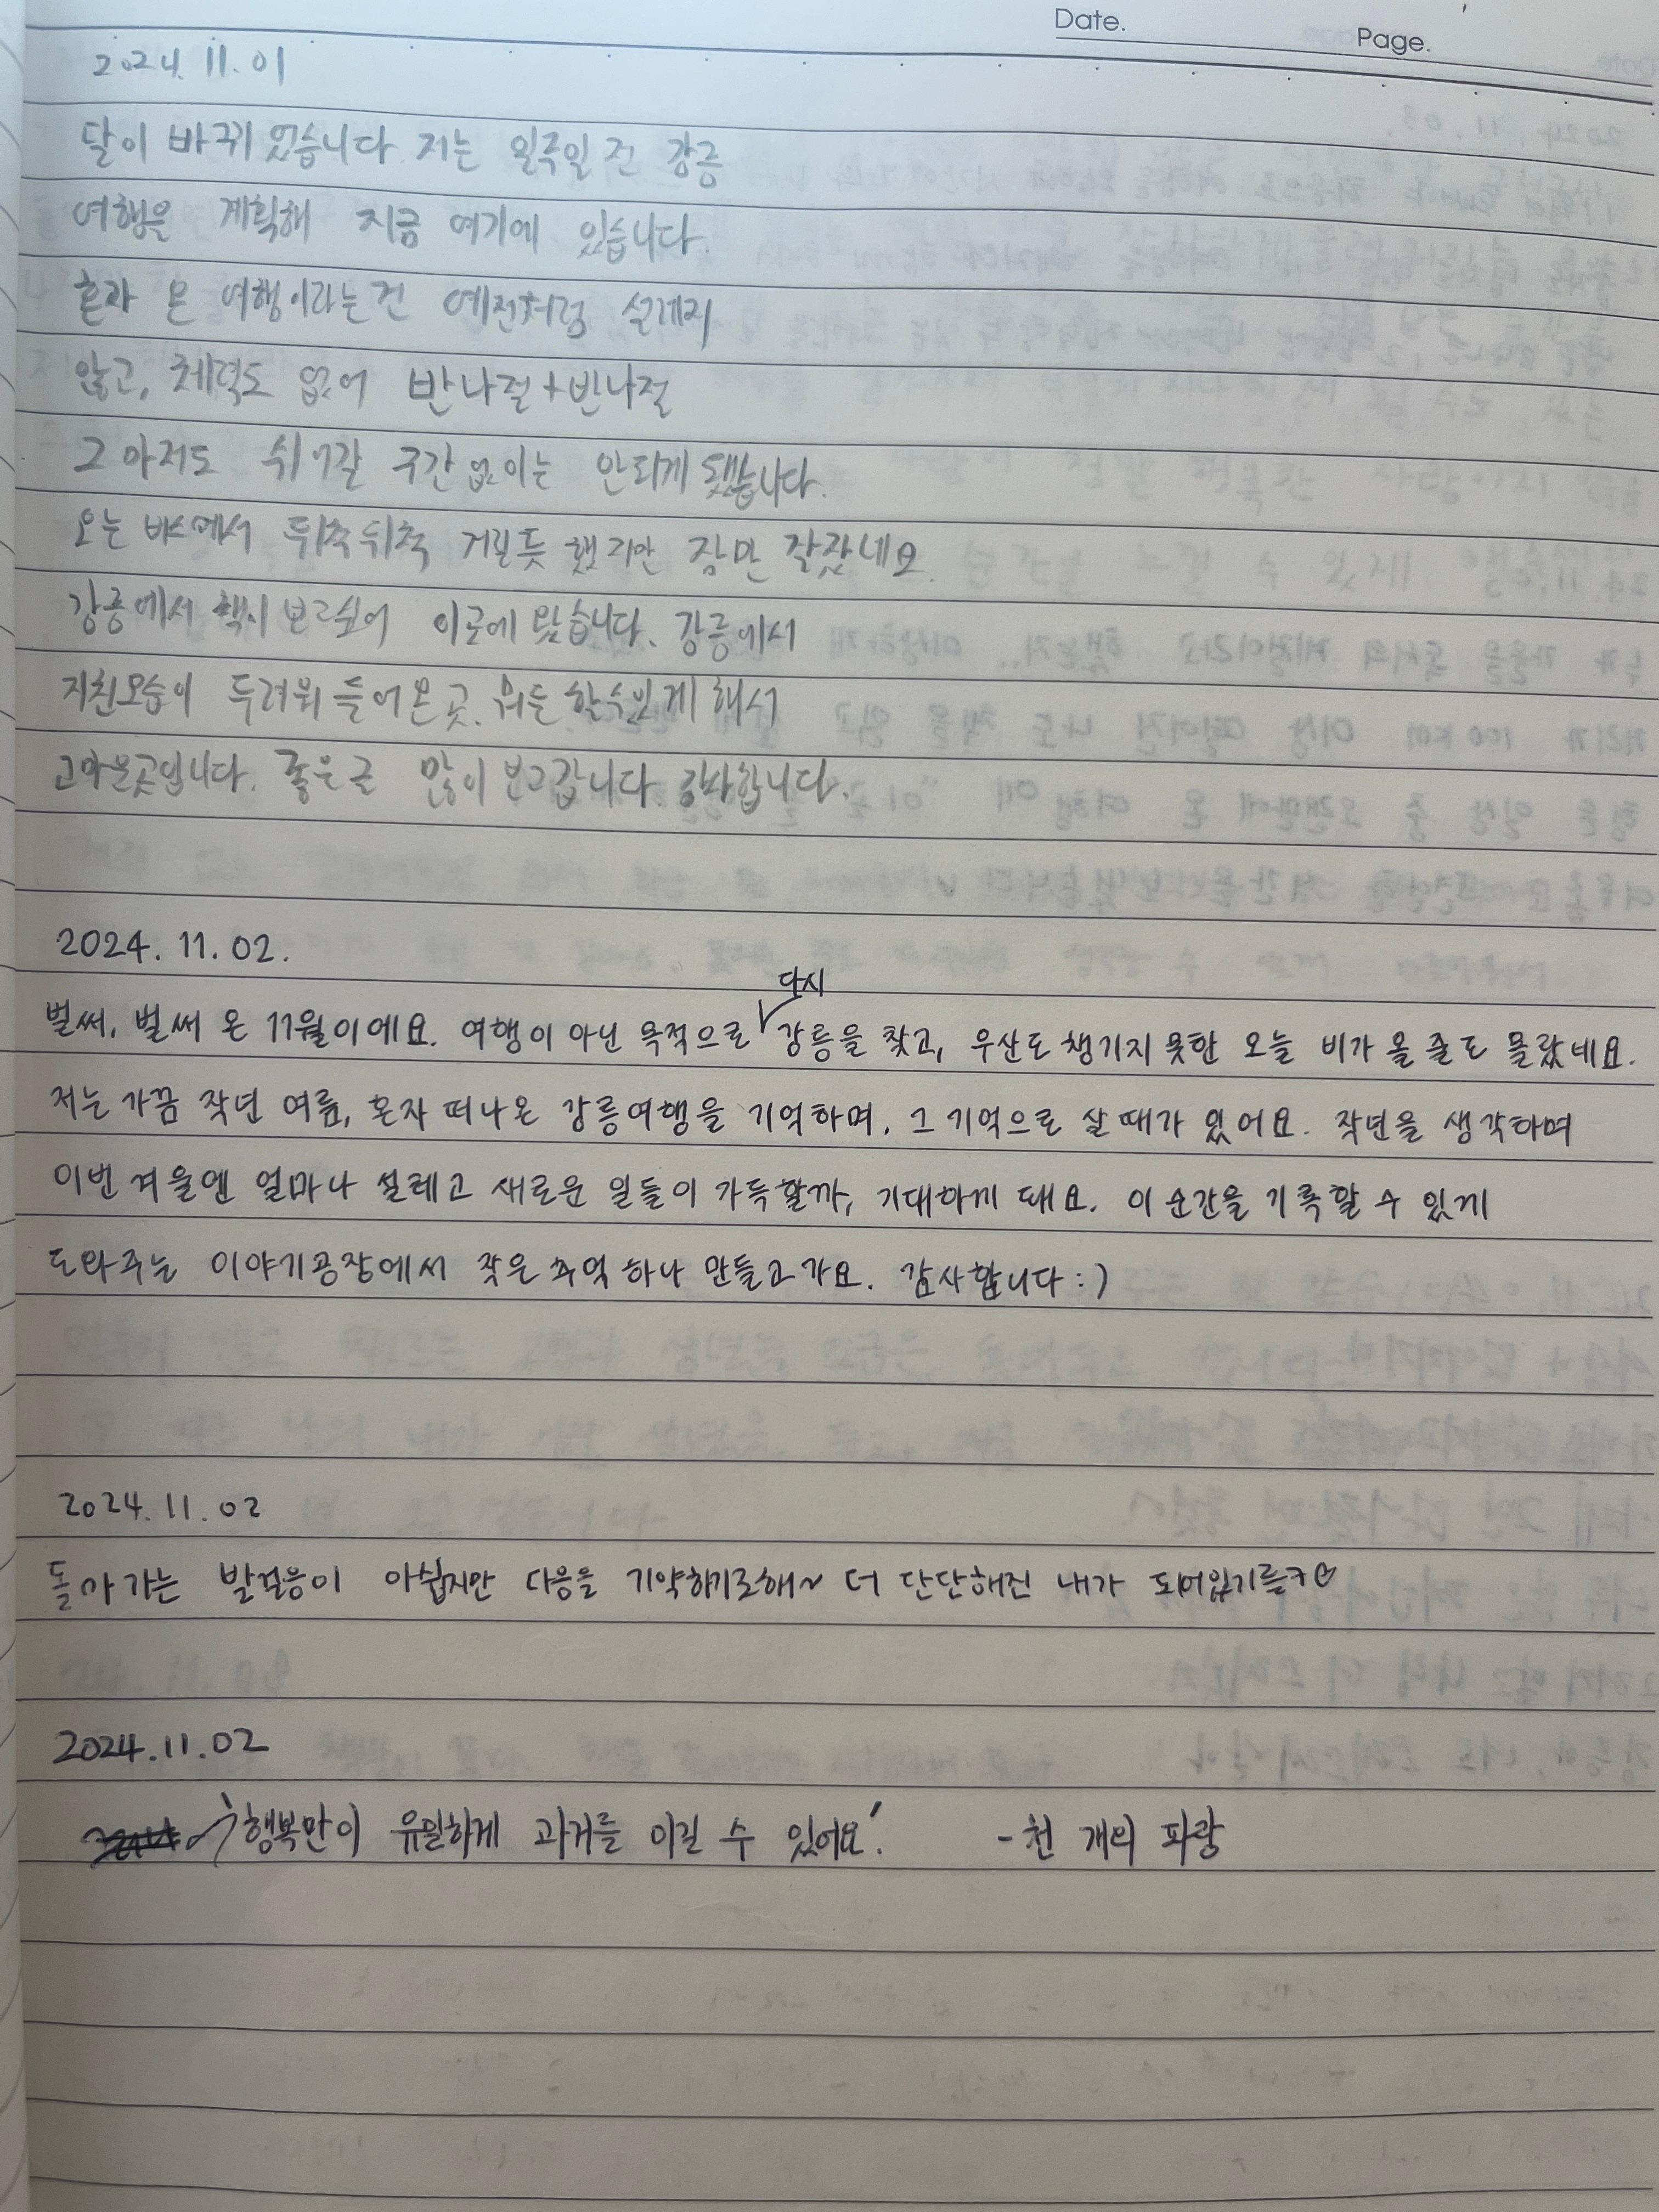 Date.
Page.
2024. 11. 01
달이 바뀌었습니다 저는 일주일 전 강릉
여행을 계획해 지금 여기에 있습니다.
혼자 온 여행이라는건 예전처럼 설레지
않고, 체력도 없어 반나절+반나절
그마저도 쉬어갈 구간없이는 안되게 됐습니다.
오는 버스에서 뒤척뒤척 거릴듯 했지만 잠만 잘잤네요.
강릉에서 책이 보고싶어 이곳에 왔습니다. 강릉에서
지친모습이 두려워 들어온 곳. 뭐든 할수있게 해서
고마운곳입니다. 좋은글 많이 보고갑니다. 감사합니다.
2024. 11. 02.
벌써, 벌써 온 11월이에요. 여행이 아닌 목적으로 다시 강릉을 찾고, 우산도 챙기지 못한 오늘 비가 올 줄도 몰랐네요.
저는 가끔 작년 여름, 혼자 떠나온 강릉여행을 기억하며, 그 기억으로 살 때가 있어요. 작년을 생각하며
이번 겨울엔 얼마나 설레고 새로운 일들이 가득할까, 기대하게 돼요. 이 순간을 기록할 수 있게
도와주는 이야기공장에서 작은 추억 하나 만들고 가요. 감사합니다 : )
2024. 11. 02
돌아가는 발걸음이 아쉽지만 다음을 기약하기로해~ 더 단단해진 내가 되어있기를
2024.11.02
'행복만이 유일하게 과거를 이길 수 있어요.' - 천 개의 파랑